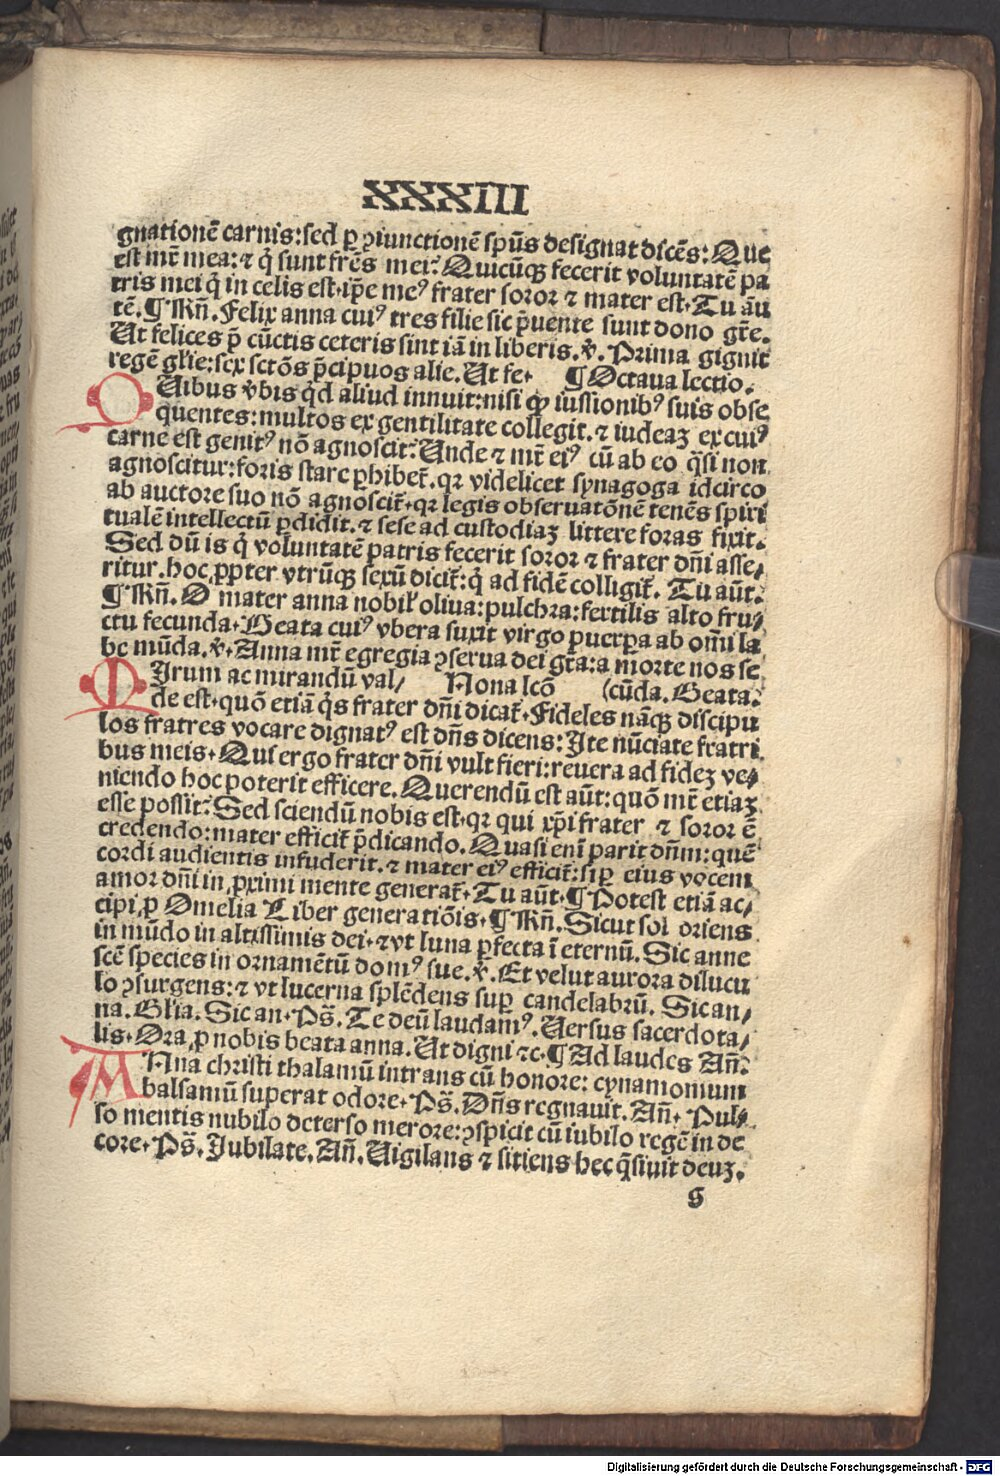 XXXIII
gnationē carnis: sed ꝑ ꝯiunctionē spūs designat dicēs: Que
est mr̄ mea: ⁊ q̇ sunt fr̄es mei? Quicūqꝫ fecerit voluntatē pa
tris mei q̇ in celis est. ip̄e meꝰ frater soror ⁊ mater est. Tu āu
tē. ¶ Rn̄. Felix anna cuiꝰ tres filie sic p̄uente sunt dono gr̄e.
Ut felices p̄ cūctis ceteris sint iā in liberis. ꝟ. Prima gignit
regē gl̄ie: sex sctōs p̄cipuos alie. Ut fe. ¶ Octaua lectio.
QUibus v̓bis qd̓ aliud innuit: nisi ꝙ iussionibꝰ suis obse
quentes: multos ex gentilitate collegit. ⁊ iudeaꝫ ex cuiꝰ
carne est genitꝰ nō agnoscit? Unde ⁊ mr̄ eiꝰ cū ab eo q̄si non
agnoscitur: foris stare ꝑhibet̄. qꝛ videlicet synagoga idcirco
ab auctore suo nō agnoscit̄. qꝛ legis obseruatōnē tenēs spiri
tualē intellectū ꝑdidit. ⁊ sese ad custodiaꝫ littere foras fixit.
Sed dū is q̇ voluntatē patris fecerit soror ⁊ frater dn̄i asse/
ritur. hoc ꝓpter vtrūqꝫ sexū dicit̄: q̇ ad fidē colligit̄. Tu aūt.
¶ Rn̄. O mater anna nobil̓ oliua: pulchra: fertilis alto fru/
ctu fecunda. Beata cuiꝰ vbera suxit virgo puerꝑa ab omī la
be mūda. ꝟ. Anna mr̄ egregia ꝯserua dei gr̄a: a morte nos se
MIrum ac mirandū val/ Nona lcō (cūda. Beata.
de est. quō etiā q̇s frater dn̄i dicat̄. Fideles nāqꝫ discipu
los fratres vocare dignatꝰ est dn̄s dicens: Ite nūciate fratri
bus meis. Qui ergo frater dn̄i vult fieri: reuera ad fideꝫ ve/
niendo hoc poterit efficere. Querendū est aūt: quō mr̄ etiaꝫ
esse possit? Sed sciendū nobis est. qꝛ qui xp̄i frater ⁊ soror ē
credendo: mater efficit̄ p̄dicando. Quasi enī parit dn̄m: quē
cordi audientis infuderit. ⁊ mater eiꝰ efficit̄: si ꝑ eius vocem
amor dn̄i in ꝓximi mente generat̄. Tu aūt. ¶ Potest etiā ac/
cipi ꝓ Omelia Liber generatiōis. ¶ Rn̄. Sicut sol oriens
in mūdo in altissimis dei. ⁊ vt luna ꝑfecta ī eternū. Sic anne
scē species in ornamētū domꝰ sue. ꝟ. Et velut aurora dilucu
lo ꝯsurgens: ⁊ vt lucerna splēdens suꝑ candelabrū. Sic an/
na. Gl̄ia. Sic an. Ps̄. Te deū laudamꝰ. Uersus sacerdota/
lis. Ora ꝓ nobis beata anna. Ut digni ⁊c. ¶ Ad laudes An̄.
ANna christi thalamū intrans cū honore: cynamonium
balsamū superat odore. Ps̄. Dn̄s regnauit. An̄. Pul/
so mentis nubilo deterso merore: ꝯspicit cū iubilo regē in de
core. Ps̄. Jubilate. An̄. Uigilans ⁊ sitiens hec q̄siuit deuꝫ.
g
Digitalisierung gefördert durch die Deutsche Forschungsgemeinschaft - DFG